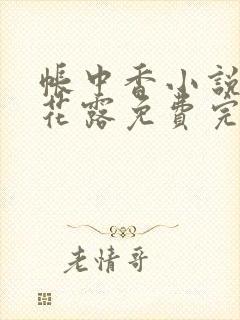 帳中香小說
花露免費完
老情哥